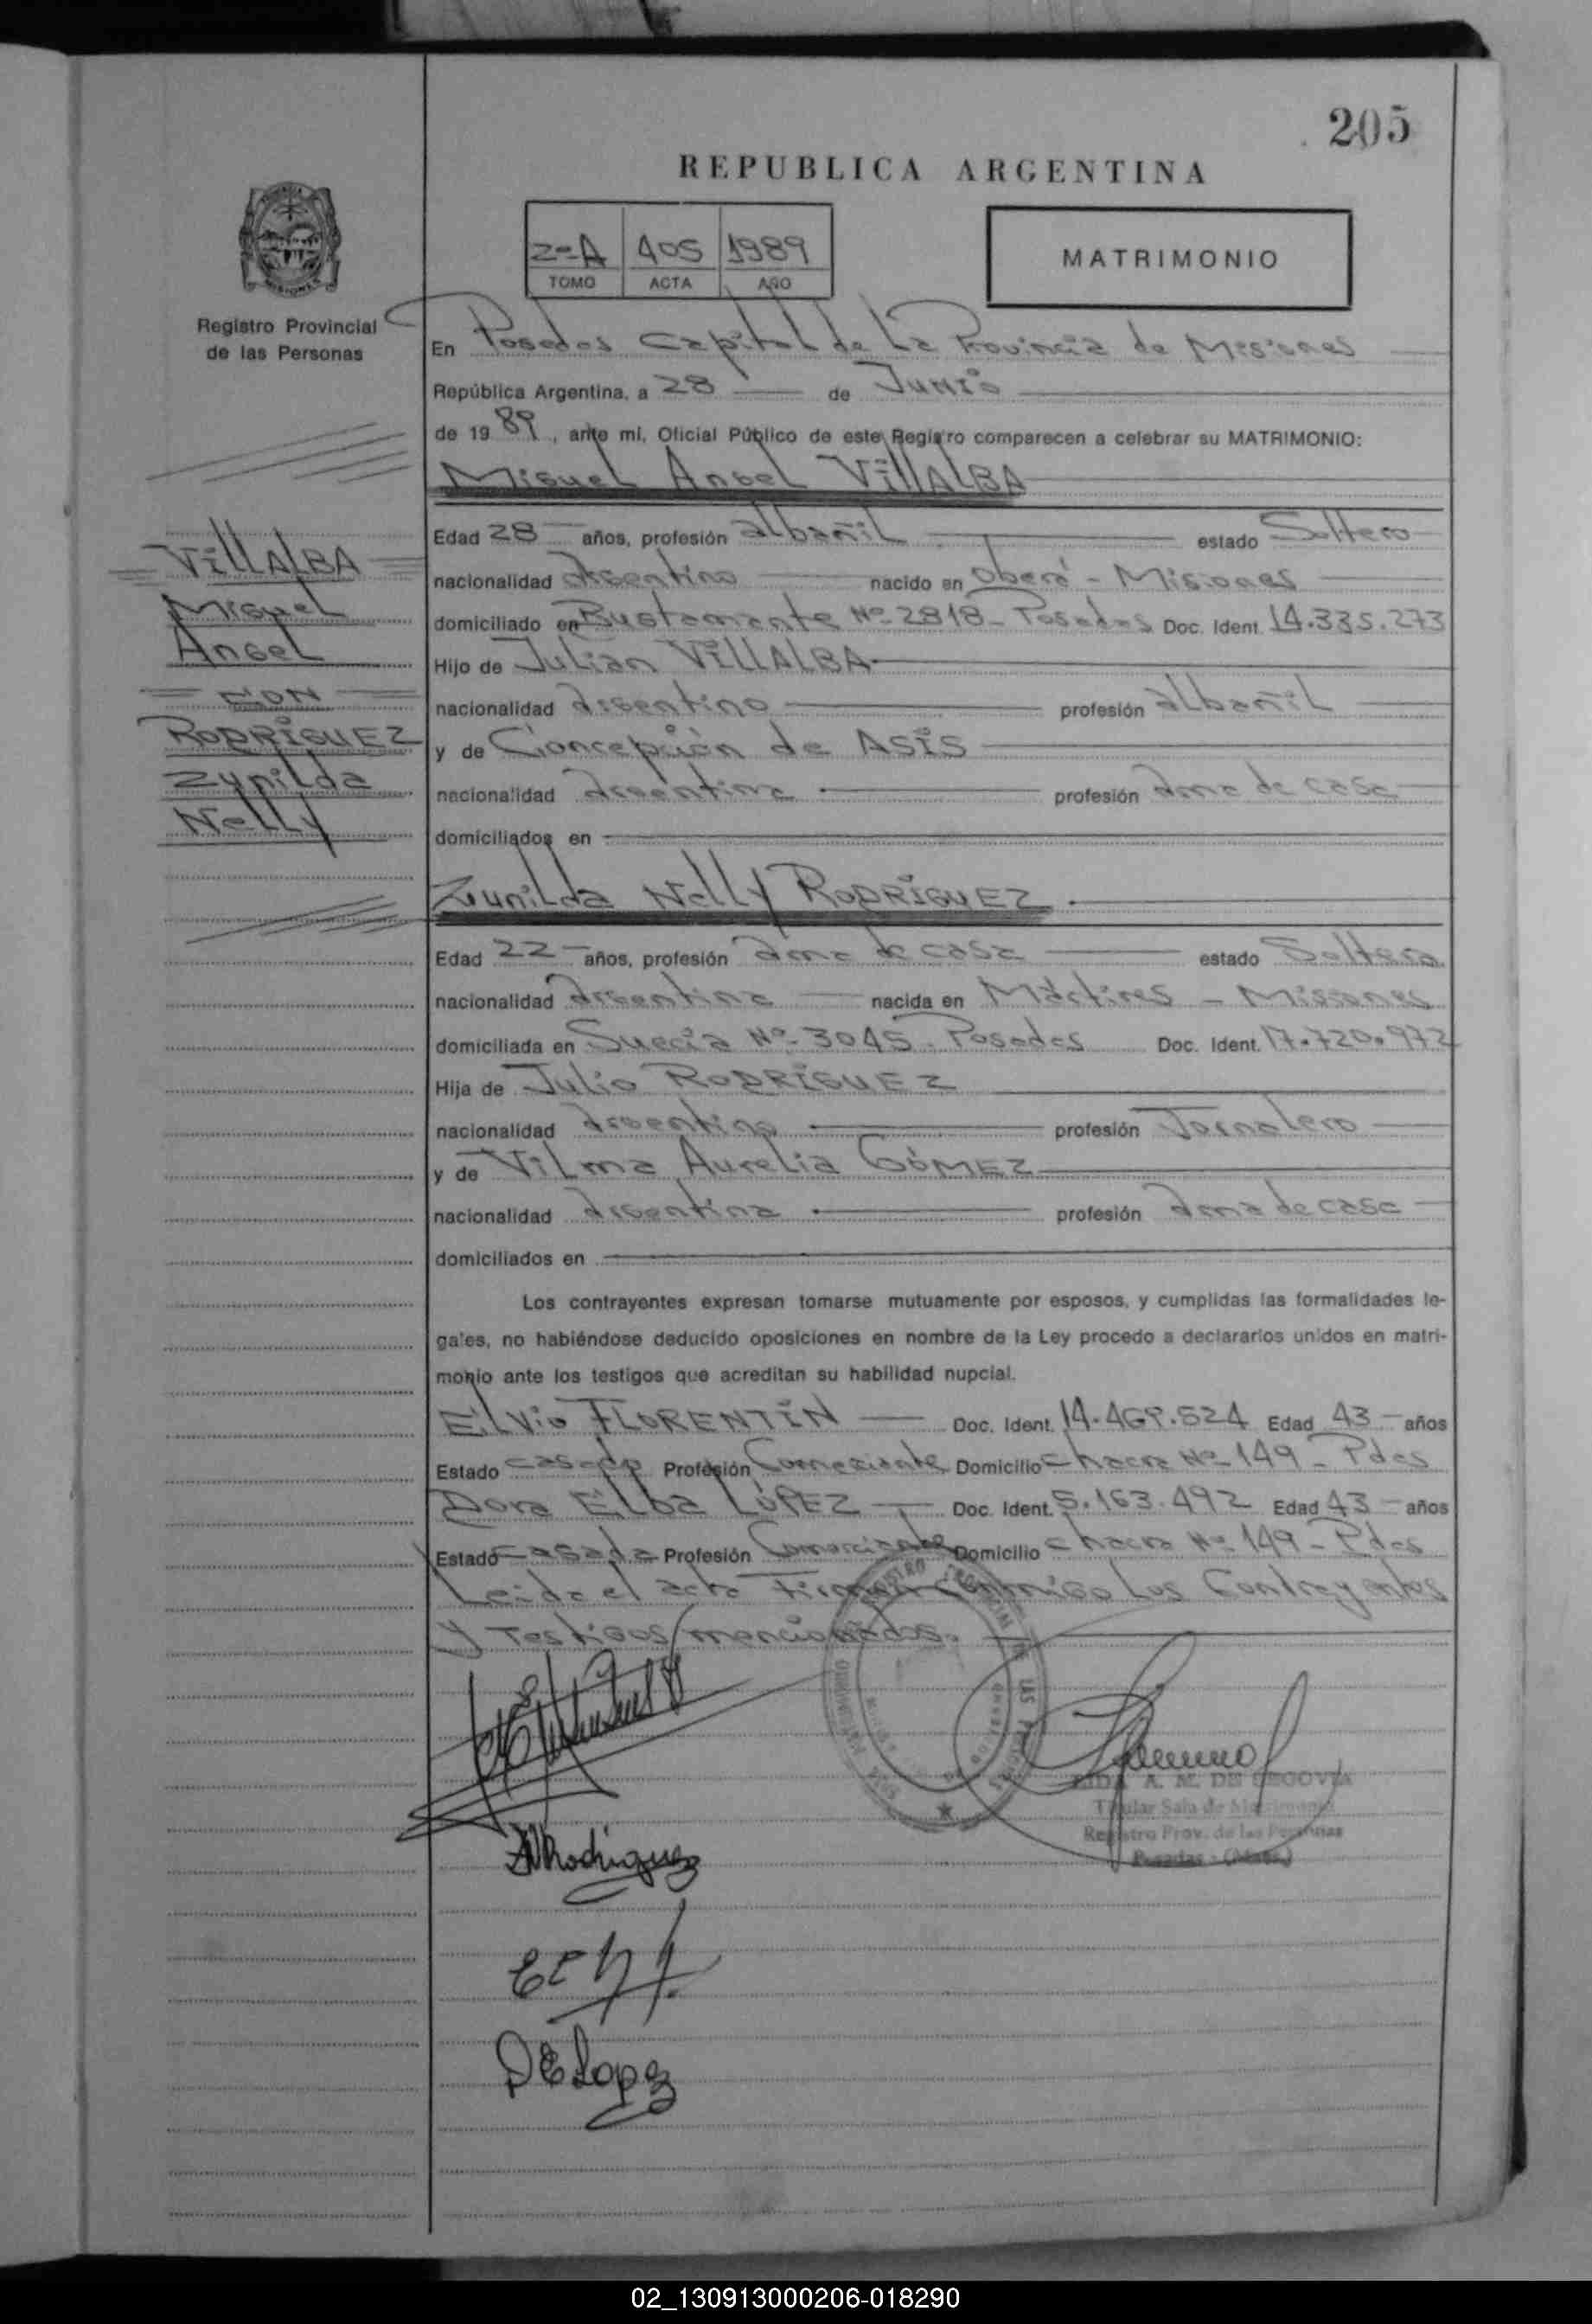 205
REPUBLICA ARGENTINA
2=A 405 1989
TOMO ACTA AÑO
MATRIMONIO
MISIONES
Registro Provincial
de las Personas
En Posadas Capital de La Provincia de Misiones
República Argentina, a 28 de Junio
de 1989, ante mi, Oficial Público de este Registro comparecen a celebrar su MATRIMONIO:
Miguel Angel VillALBA
Edad 28 años, profesión albañil estado Soltero
nacionalidad argentino nacido en Oberá - Misiones
domiciliado en Bustamante Nº 2818 - Posadas Doc. Ident. 14.335.273
Hijo de Julian VillALBA
nacionalidad argentino profesión albañil
y de Concepción de ASÍS
nacionalidad argentina profesión ama de casa
domiciliados en
VillALBA
Miguel
Angel
CON
RODRÍGUEZ
Zunilda
Nelly
Zunilda Nelly RODRÍGUEZ
Edad 22 años, profesión ama de casa estado Soltera
nacionalidad argentina nacida en Mártires - Misiones
domiciliada en Suecia Nº 3045. Posadas Doc. Ident. 17.720.972
Hija de Julio RODRÍGUEZ
nacionalidad argentino profesión Jornalero
y de Vilma Aurelia GÓMEZ
nacionalidad argentina profesión ama de casa
domiciliados en
Los contrayentes expresan tomarse mutuamente por esposos, y cumplidas las formalidades le-
gales, no habiéndose deducido oposiciones en nombre de la Ley procedo a declararlos unidos en matri-
monio ante los testigos que acreditan su habilidad nupcial.
Elvio FLORENTÍN Doc. Ident. 14.469.524 Edad 43 años
Estado casado Profesión Comerciante Domicilio chacra Nº 149 - Pdas
Dora Elba LÓPEZ Doc. Ident. 5.163.492 Edad 43 años
Estado casada Profesión Comerciante Domicilio chacra Nº 149 - Pdas
Leida el acta Firman conmigo Los Contrayentes
y Testigos mencionados.
A. M. DE SEGOVIA
Titular Sala de Matrimonio
Registro Prov. de las Personas
Posadas - (Mnes.)
ZNRodriguez
DELopez
02_130913000206-018290